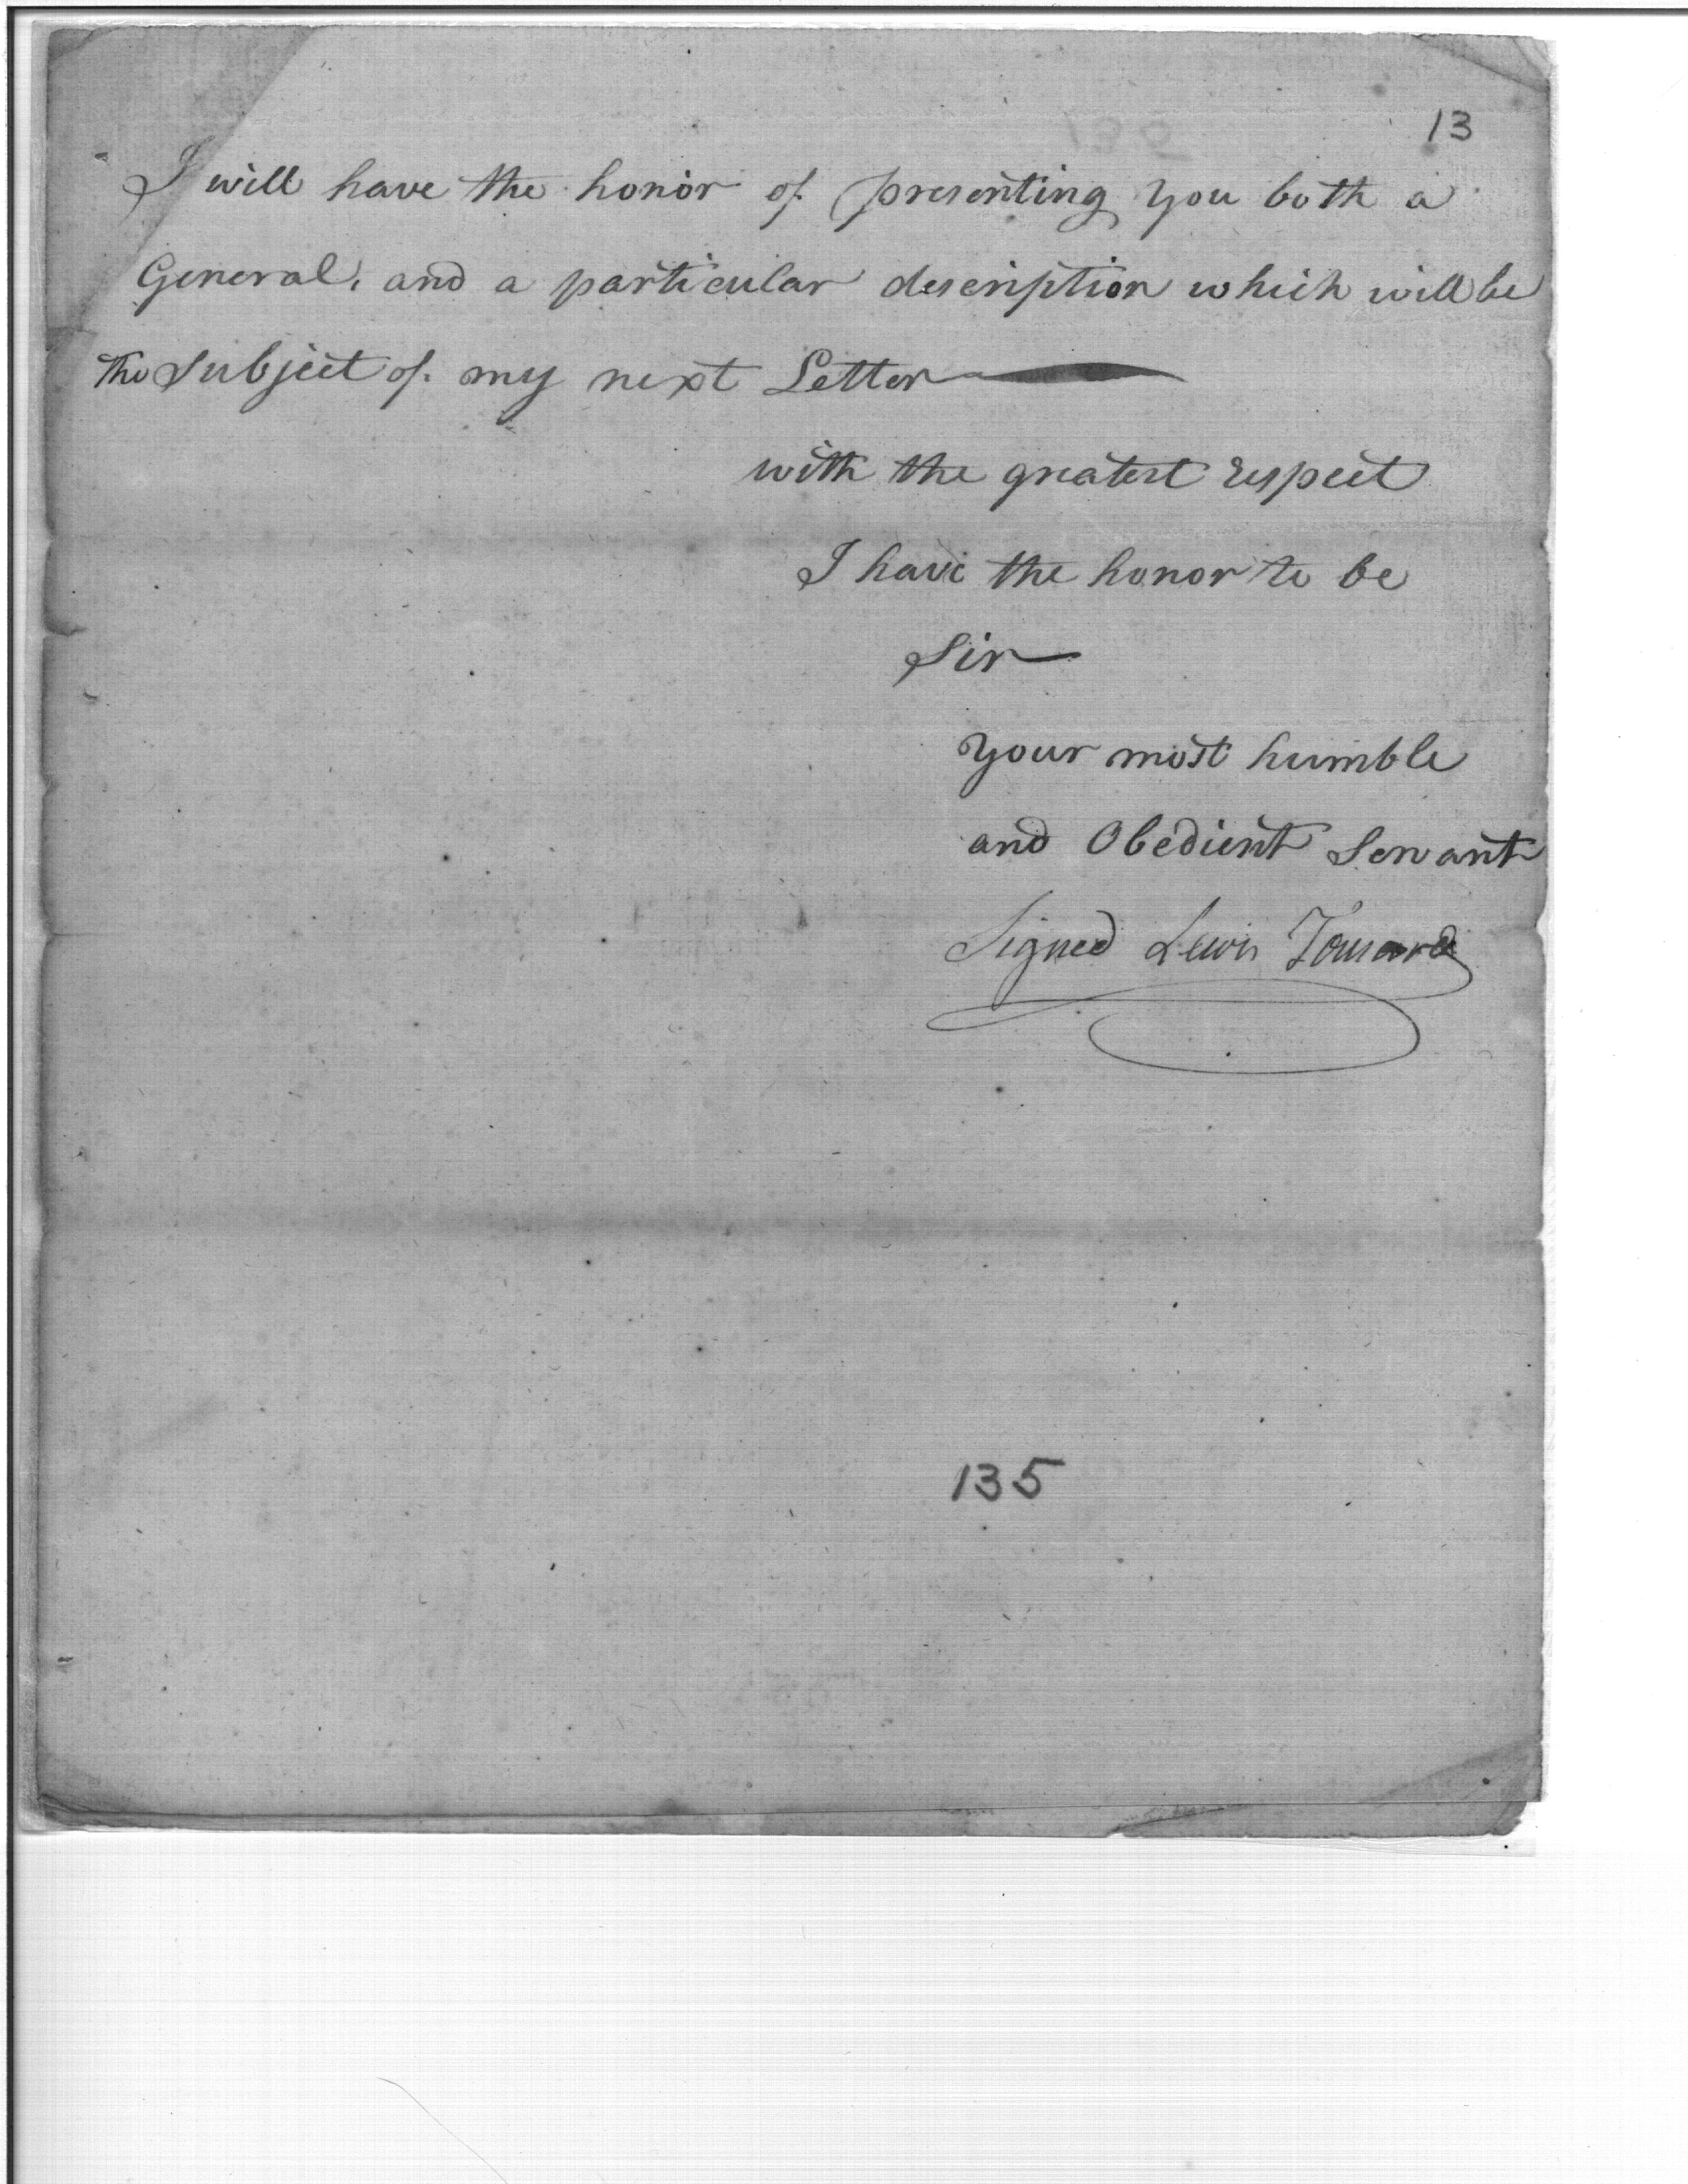 13
I will have the honor of presenting you both a
General, and a particular description which will be
the Subject of my next Letter
with the greatest respect
I have the honor to be
Sir
Your most humble
and Obedient Servant
Signed Lewis Tousard
135